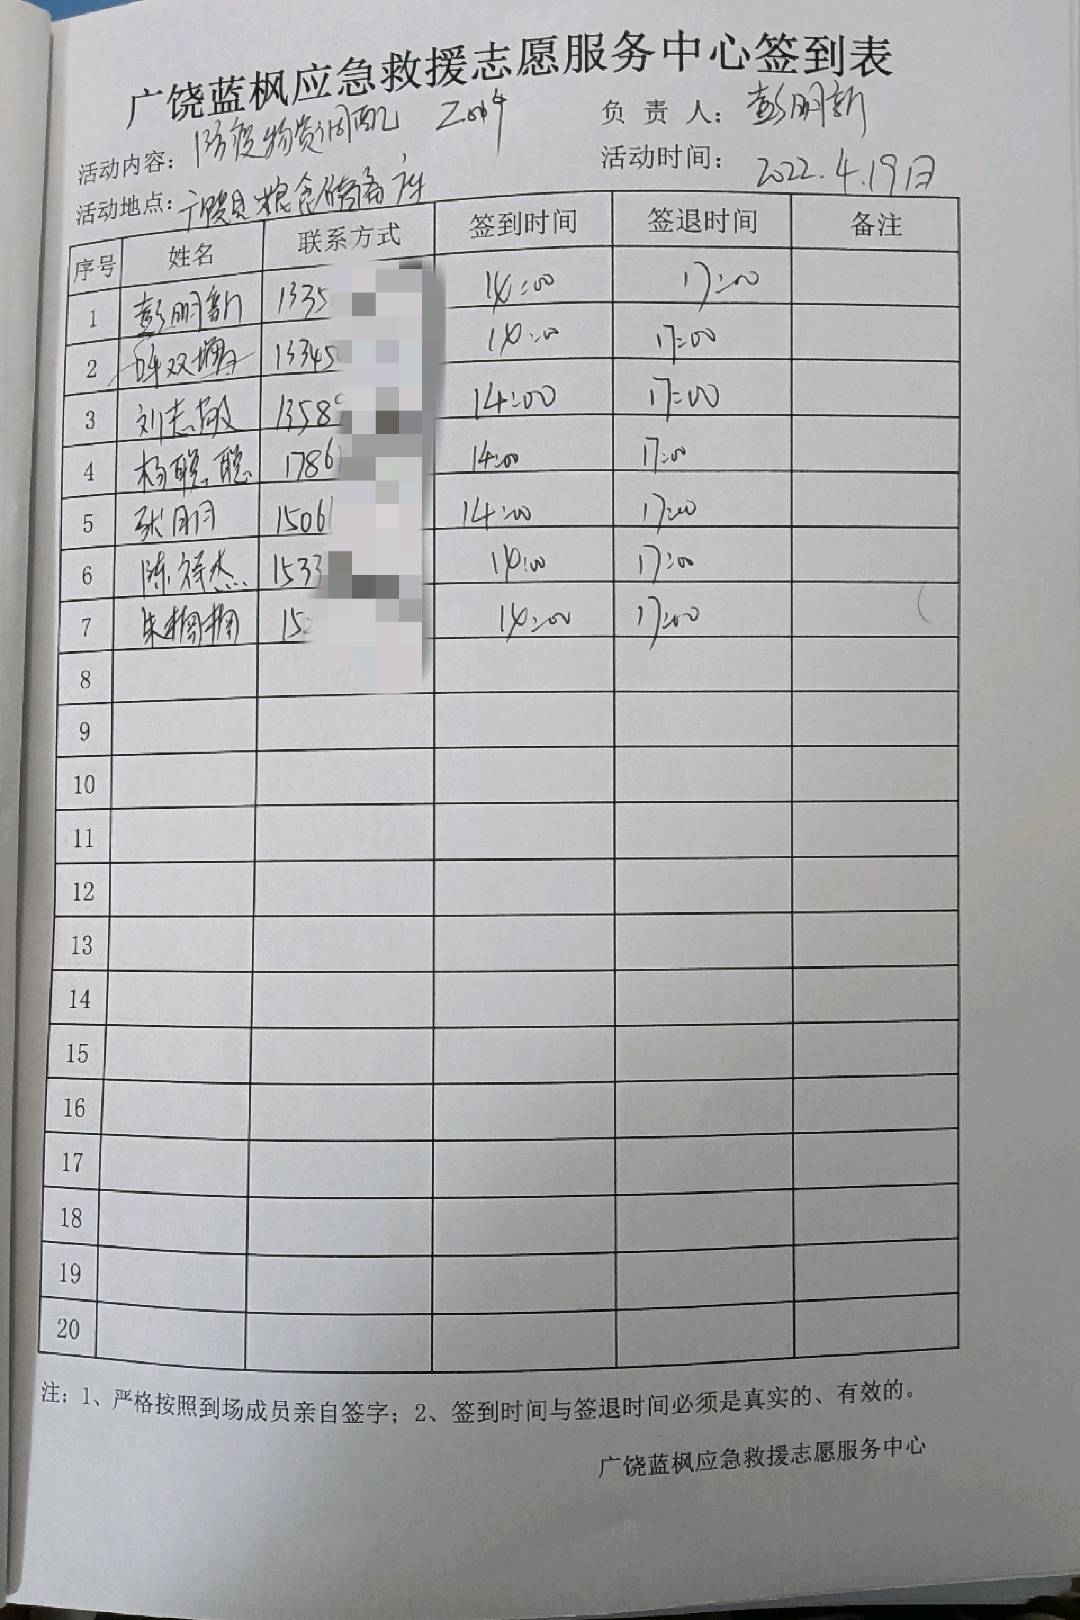 广饶蓝枫应急救援志愿服务中心签到表
活动内容：防疫物资调配 负责人：彭明新
活动地点：广饶县粮食储备库 活动时间：2022.4.19日
序号 姓名 联系方式 签到时间 签退时间 备注
1 彭明新 1335 14:00 17:00
2 双 13345 14:00 17:00
3 刘志敏 1358 14:00 17:00
4 杨聪聪 1786 14:00 17:00
5 张明 1506 14:00 17:00
6 陈祥杰 1533 14:00 17:00
7 朱 15 14:00 17:00
8
9
10
11
12
13
14
15
16
17
18
19
20
注：1、严格按照到场成员亲自签字；2、签到时间与签退时间必须是真实的、有效的。
广饶蓝枫应急救援志愿服务中心